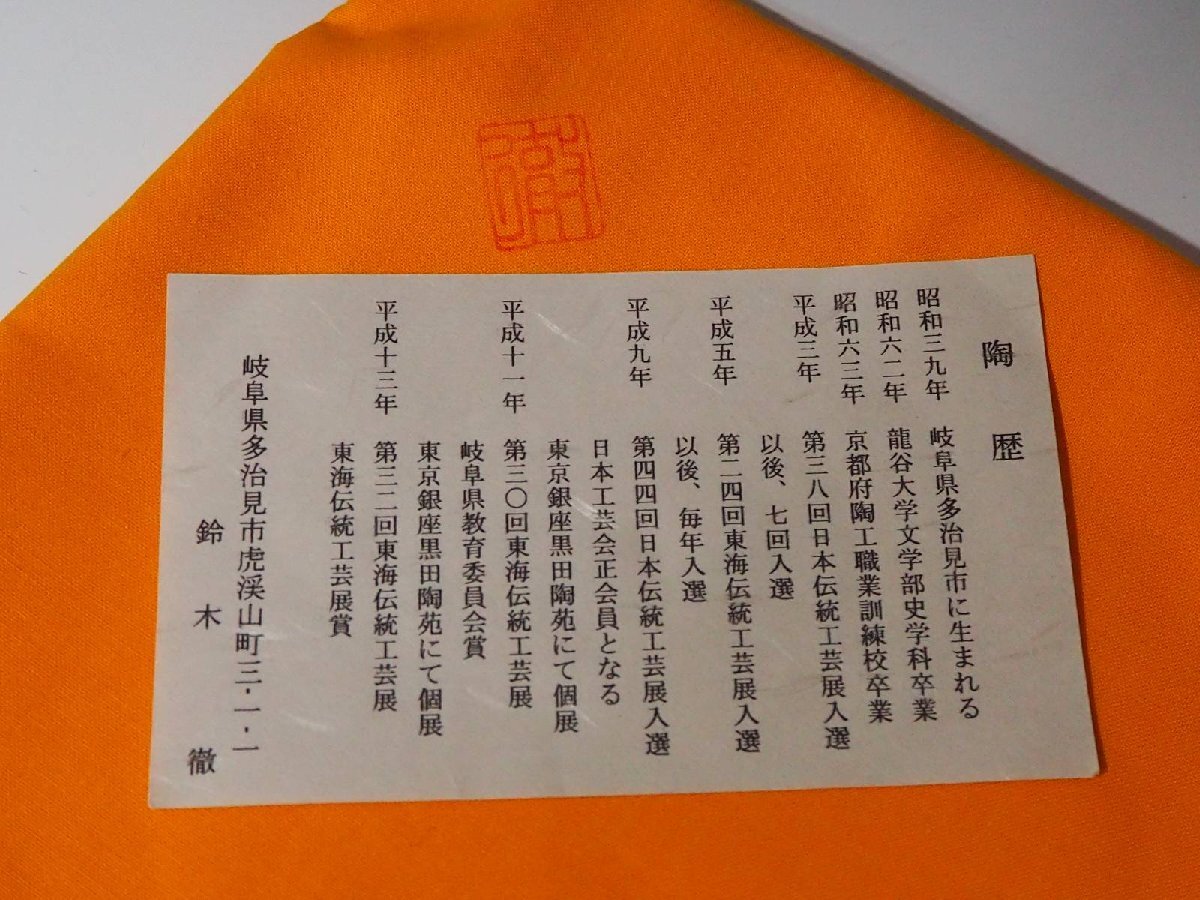 陶歴
昭和三九年 岐阜県多治見市に生まれる
昭和六二年 龍谷大学文学部史学科卒業
昭和六三年 京都府陶工職業訓練校卒業
平成三年 第三八回日本伝統工芸展入選
以後、七回入選
平成五年 第二四回東海伝統工芸展入選
以後、毎年入選
平成九年 第四四回日本伝統工芸展入選
日本工芸会正会員となる
東京銀座黒田陶苑にて個展
平成十一年 第三〇回東海伝統工芸展
岐阜県教育委員会賞
東京銀座黒田陶苑にて個展
平成十三年 第三二回東海伝統工芸展
東海伝統工芸展賞
岐阜県多治見市虎渓山町三-一-一
鈴木徹